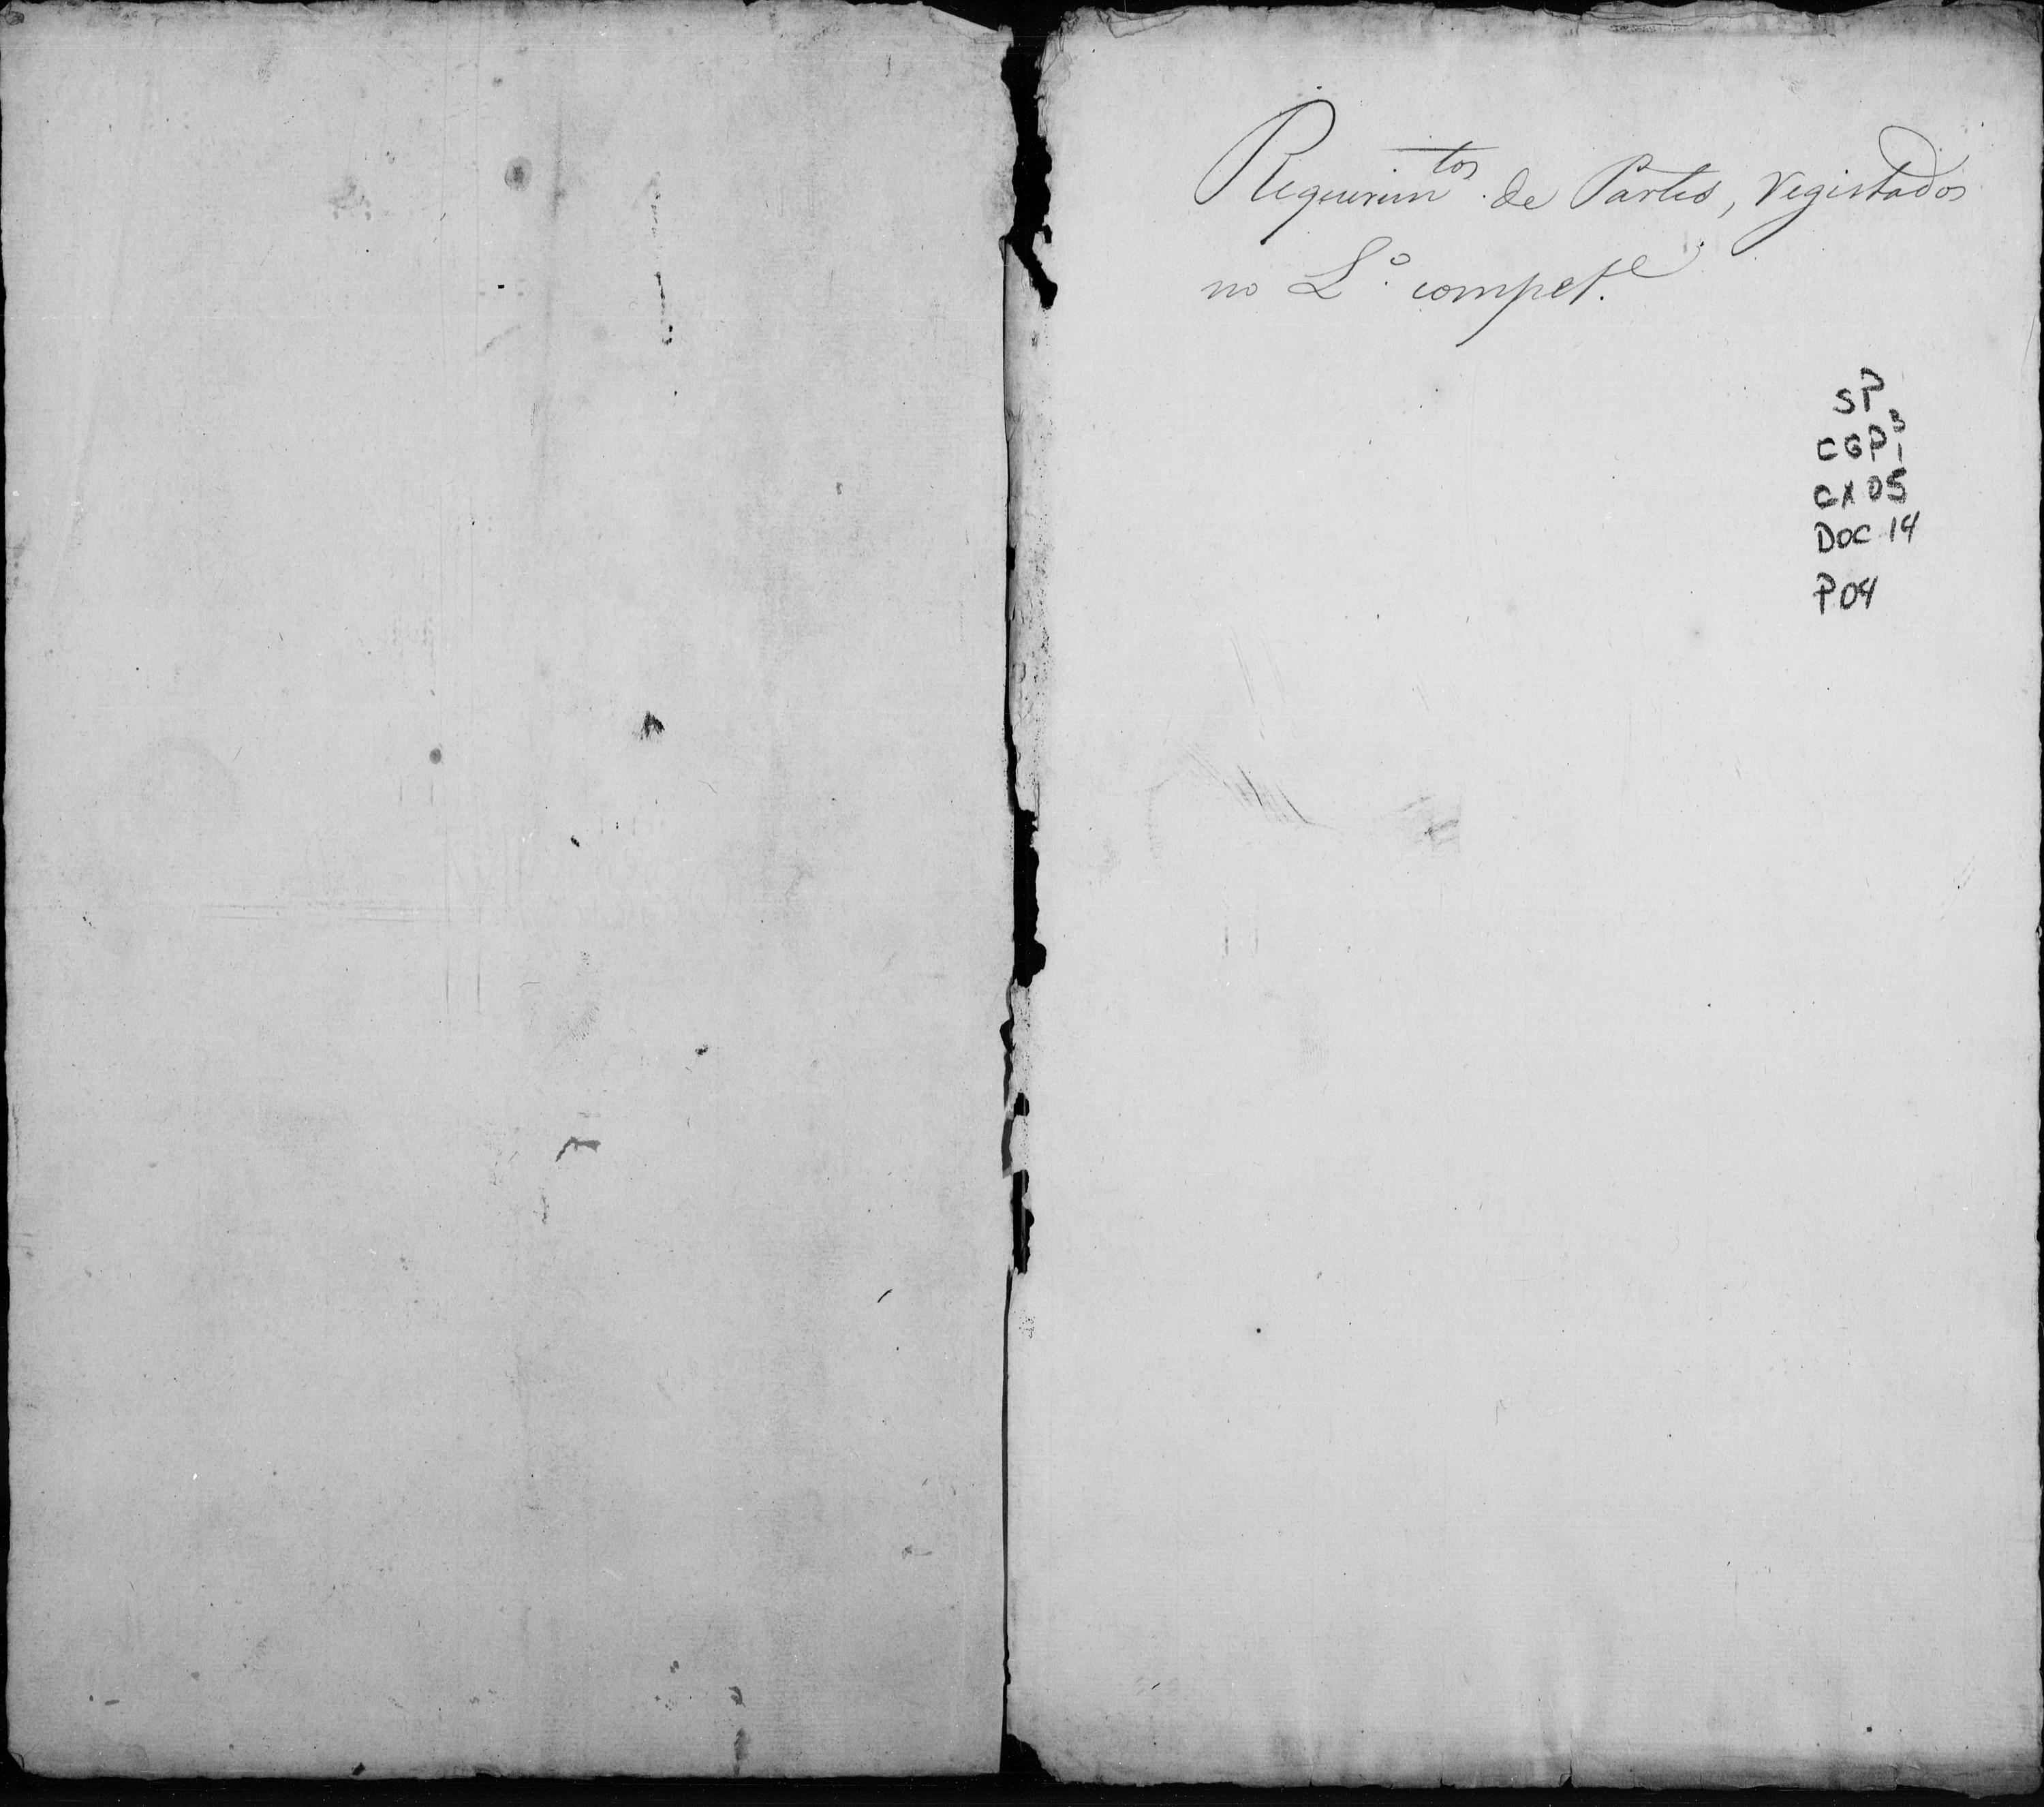 Requerim.tos de Partes, registados
no L.o compet.e
SP
CGP 3
1
CX 05
DOC 14
P 04